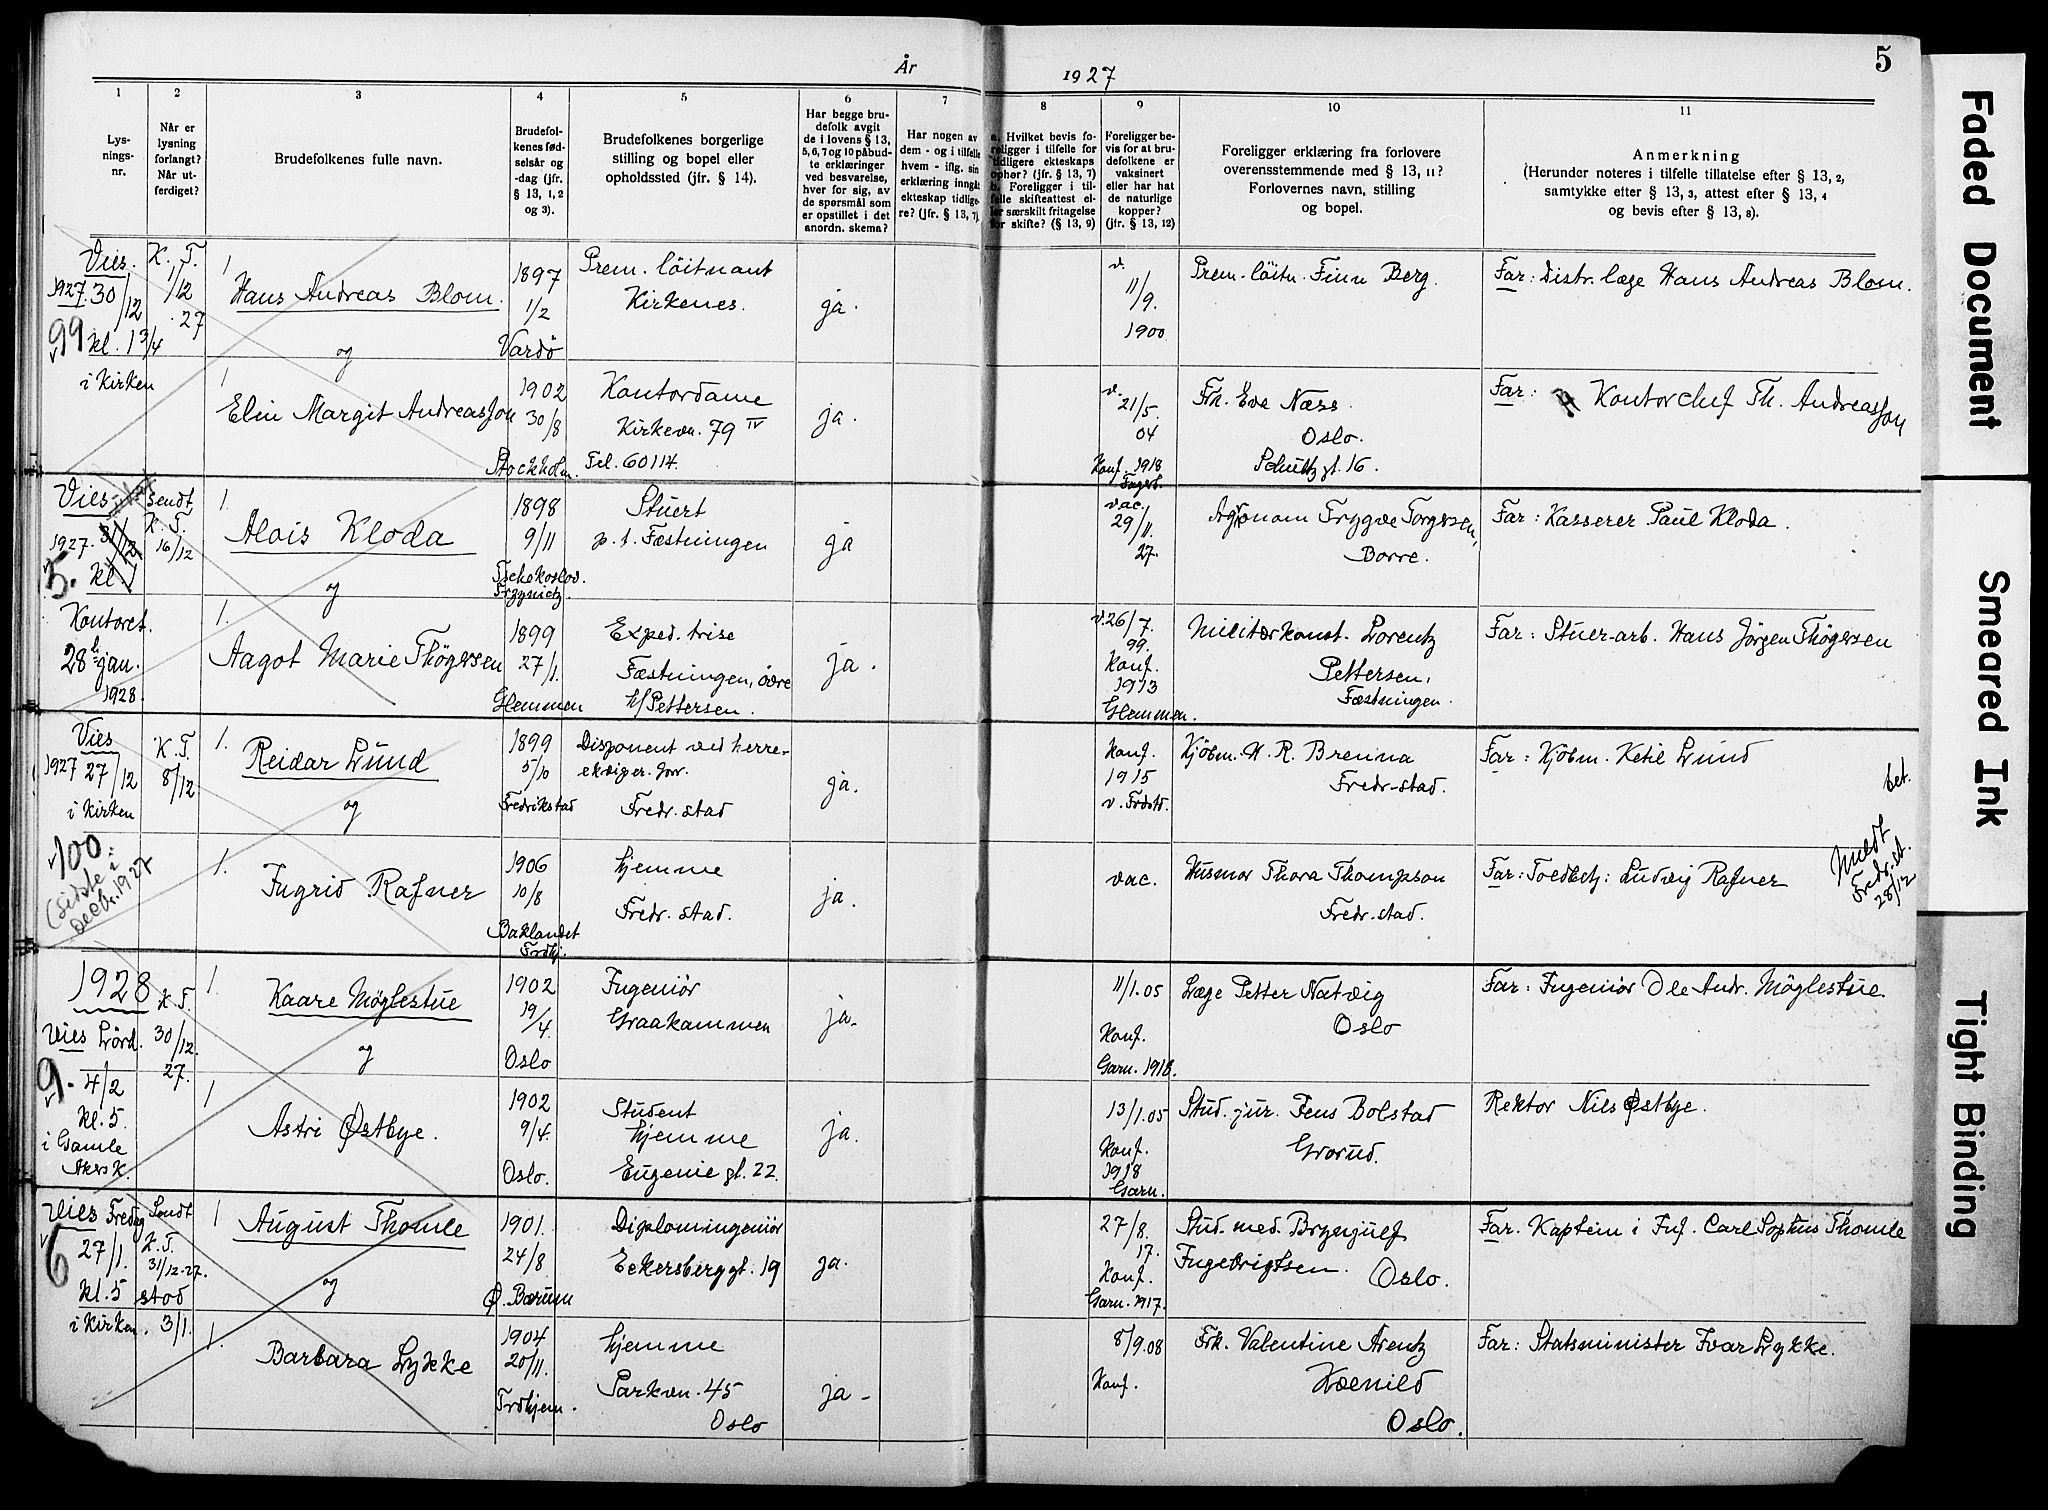 År 1927
5
1
2
3
4
5
6
7
8
9
10
11
Lys-
nings-
nr.
Når er
lysning
forlangt?
Når ut-
ferdiget?
Brudefolkenes fulle navn.
Brudefol-
kenes fød-
selsår og
-dag (jfr.
§ 13, 1, 2
og 3).
Brudefolkenes borgerlige
stilling og bopel eller
opholdssted (jfr. § 14).
Har begge bru-
defolk avgit
de i lovens § 13,
5, 6, 7 og 10 påbud-
te erklæringer
ved besvarelse,
hver for sig, av
de spørsmål som
er opstillet i det
anordn. skema?
Har nogen av
dem - og i tilfelle
hvem - iflg. sin
erklæring inngått
ekteskap tidlige-
re? (jfr. § 13, 7).
a. Hvilket bevis fo-
religger i tilfelle for
tidligere ekteskaps
ophør? (jfr. § 13, 7)
b. Foreligger i til-
felle skifteattest el-
ler særskilt fritagelse
for skifte? (§ 13, 9)
Foreligger be-
vis for at bru-
defolkene er
vaksinert
eller har hat
de naturlige
kopper?
(jfr. § 13, 12)
Foreligger erklæring fra forlovere
overensstemmende med § 13, 11?
Forlovernes navn, stilling
og bopel.
Anmerkning
(Herunder noteres i tilfelle tillatelse efter § 13, 2,
samtykke efter § 13, 3, attest efter § 13, 4
og bevis efter § 13, 8).
Vies.
1927. 30/12
99 kl. 1 3/4
i Kirken
K. T.
1/12
27
1
Hans Andreas Blom.
og
1897
1/2
Vardö
Prem. löitnant
Kirkenes.
ja.
v.
11/9.
1900
Prem. löitn. Finn Berg.
Far: Distr. læge Hans Andreas Blom.
1
Elin Margit Andreasson
1902
30/8
Stockholm.
Kontordame
Kirkevn. 79 IV
Tel. 60114.
ja.
v.
21/5.
04
Konf. 1918
Frk. Eva Næss.
Oslo.
Schultz gt. 16.
Far: Kontorchef Th. Andreasson
Vies
1927. 31/12
5. kl. 1
Kontoret.
28 jan.
1928.
sendt
K. T.
16/12
1.
Alois Kloda
og
1898
9/11
Tschekoslov.
Stuert
p. t. Fæstningen
ja
vac.
29/11.
27.
Agronom Trygve Torgersen,
Borre.
Far: Kasserer Paul Kloda.
1.
Aagot Marie Thögersen
1899
27/1.
Glemmen
Exped. trise
Fæstningen, övre
h/Pettersen.
ja.
v. 26/7.
99.
Konf.
1913
Glemmen.
Militærkonst. Lorentz
Pettersen,
Fæstningen.
Far: Stuer-arb. Hans Jörgen Thögersen
Vies
1927 27/12
i Kirken
100.
(sidste i
decbr. 1927
K. T.
8/12
1.
Reidar Lund
og
1899
5/10
Fredrikstad
Disponent ved herre-
ekviper. forr.
Fredr. stad
ja.
Konf.
1915
v. Frdstd.
Kjöbm. H. R. Brenna
Fredr-stad.
Far: Kjöbm. Ketil Lund
bet.
1.
Ingrid Rafner
1906
10/8
Baklandet
Trdhj.
hjemme
Fredr. stad.
ja.
vac.
Husmor Thora Thompson
Fredr. stad.
Far: Toldbetj: Ludvig Rafner
Meldt
Fredr.st.
28/12
1928
Vies Lörd.
9. 4/2
kl. 5
i Gamle
Akers K.
K. T.
30/12.
27.
1.
Kaare Möglestue
og
1902
19/4.
Oslo
Ingeniör
Graakammen
ja.
11/1.05
Konf.
Garn. 1918.
Læge Petter Natvig
Oslo
Far: Ingeniör Ole Andr. Möglestue.
1
Astri Østbye.
1902
9/4.
Oslo.
Student
hjemme
Eugenie gt. 22.
ja.
13/1.05
Konf.
1918
Garn.
Stud. jur. Jens Bolstad
Grorud.
Rektor Nils Østbye.
Vies Fredag
6 27/1.
kl. 5
i Kirken.
Sendt
K. T.
31/12-27.
stod
3/1.
1
August Thomle
og
1901.
24/8.
Ø. Bærum
Diplomingeniör
Eckersberg gt. 19
ja.
27/8.
17.
Konf.
Garn. 1917.
Stud. med. Brynjulf
Ingebrigtsen. Oslo.
Far. Kaptein i Inf. Carl Sophus Thomle
1.
Barbara Lykke
1904
20/11.
Trdhjem.
hjemme
Parkvn. 45
Oslo
ja-
8/9.08
Konf.
Frk. Valentine Arentz
Oslo.
Far: Statsminister Ivar Lykke.
Faded Document
Smeared Ink
Tight Binding